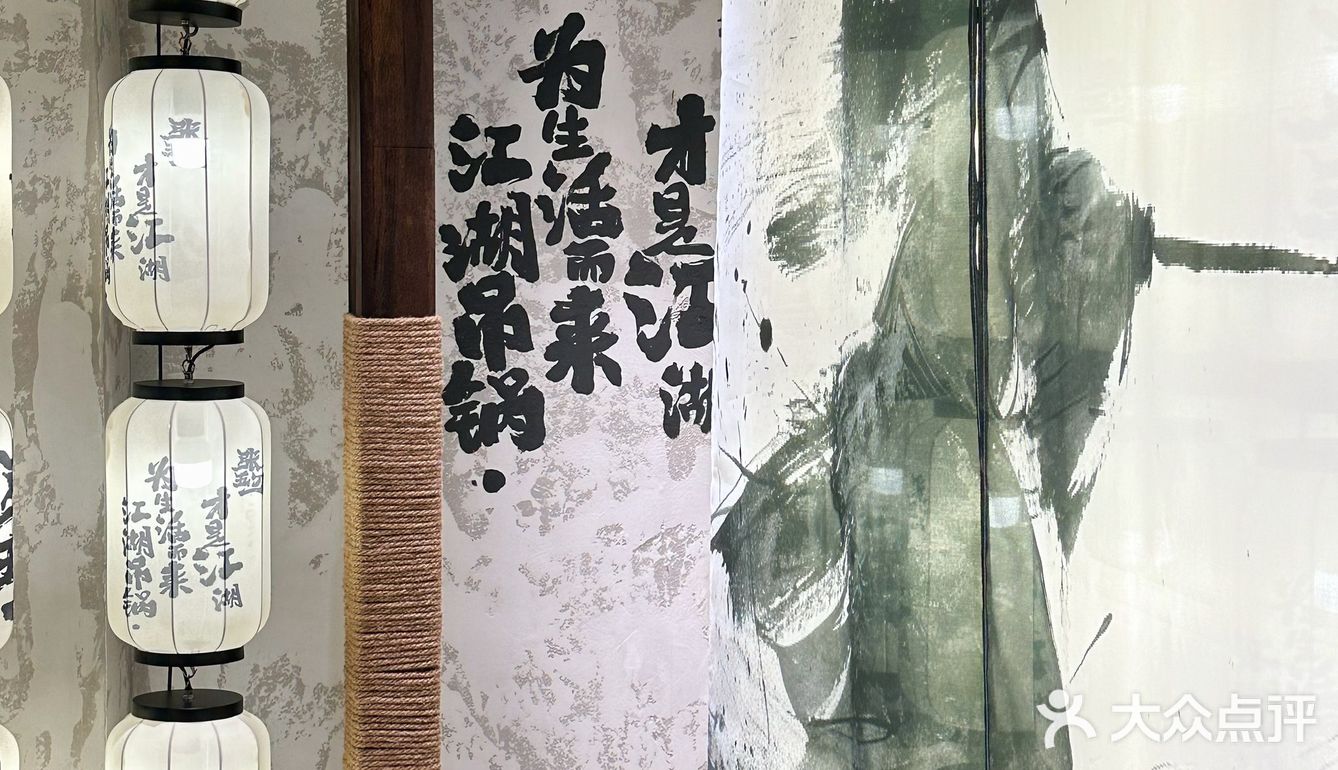 才是江湖
为生活而来
江湖吊锅
才是江湖
才是江湖
为生活而来
江湖吊锅
大众点评